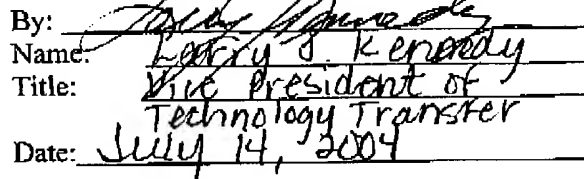 By:
Name: Larry J. Kennedy
Title: Vice President of
Technology Transfer
Date: July 14, 2004